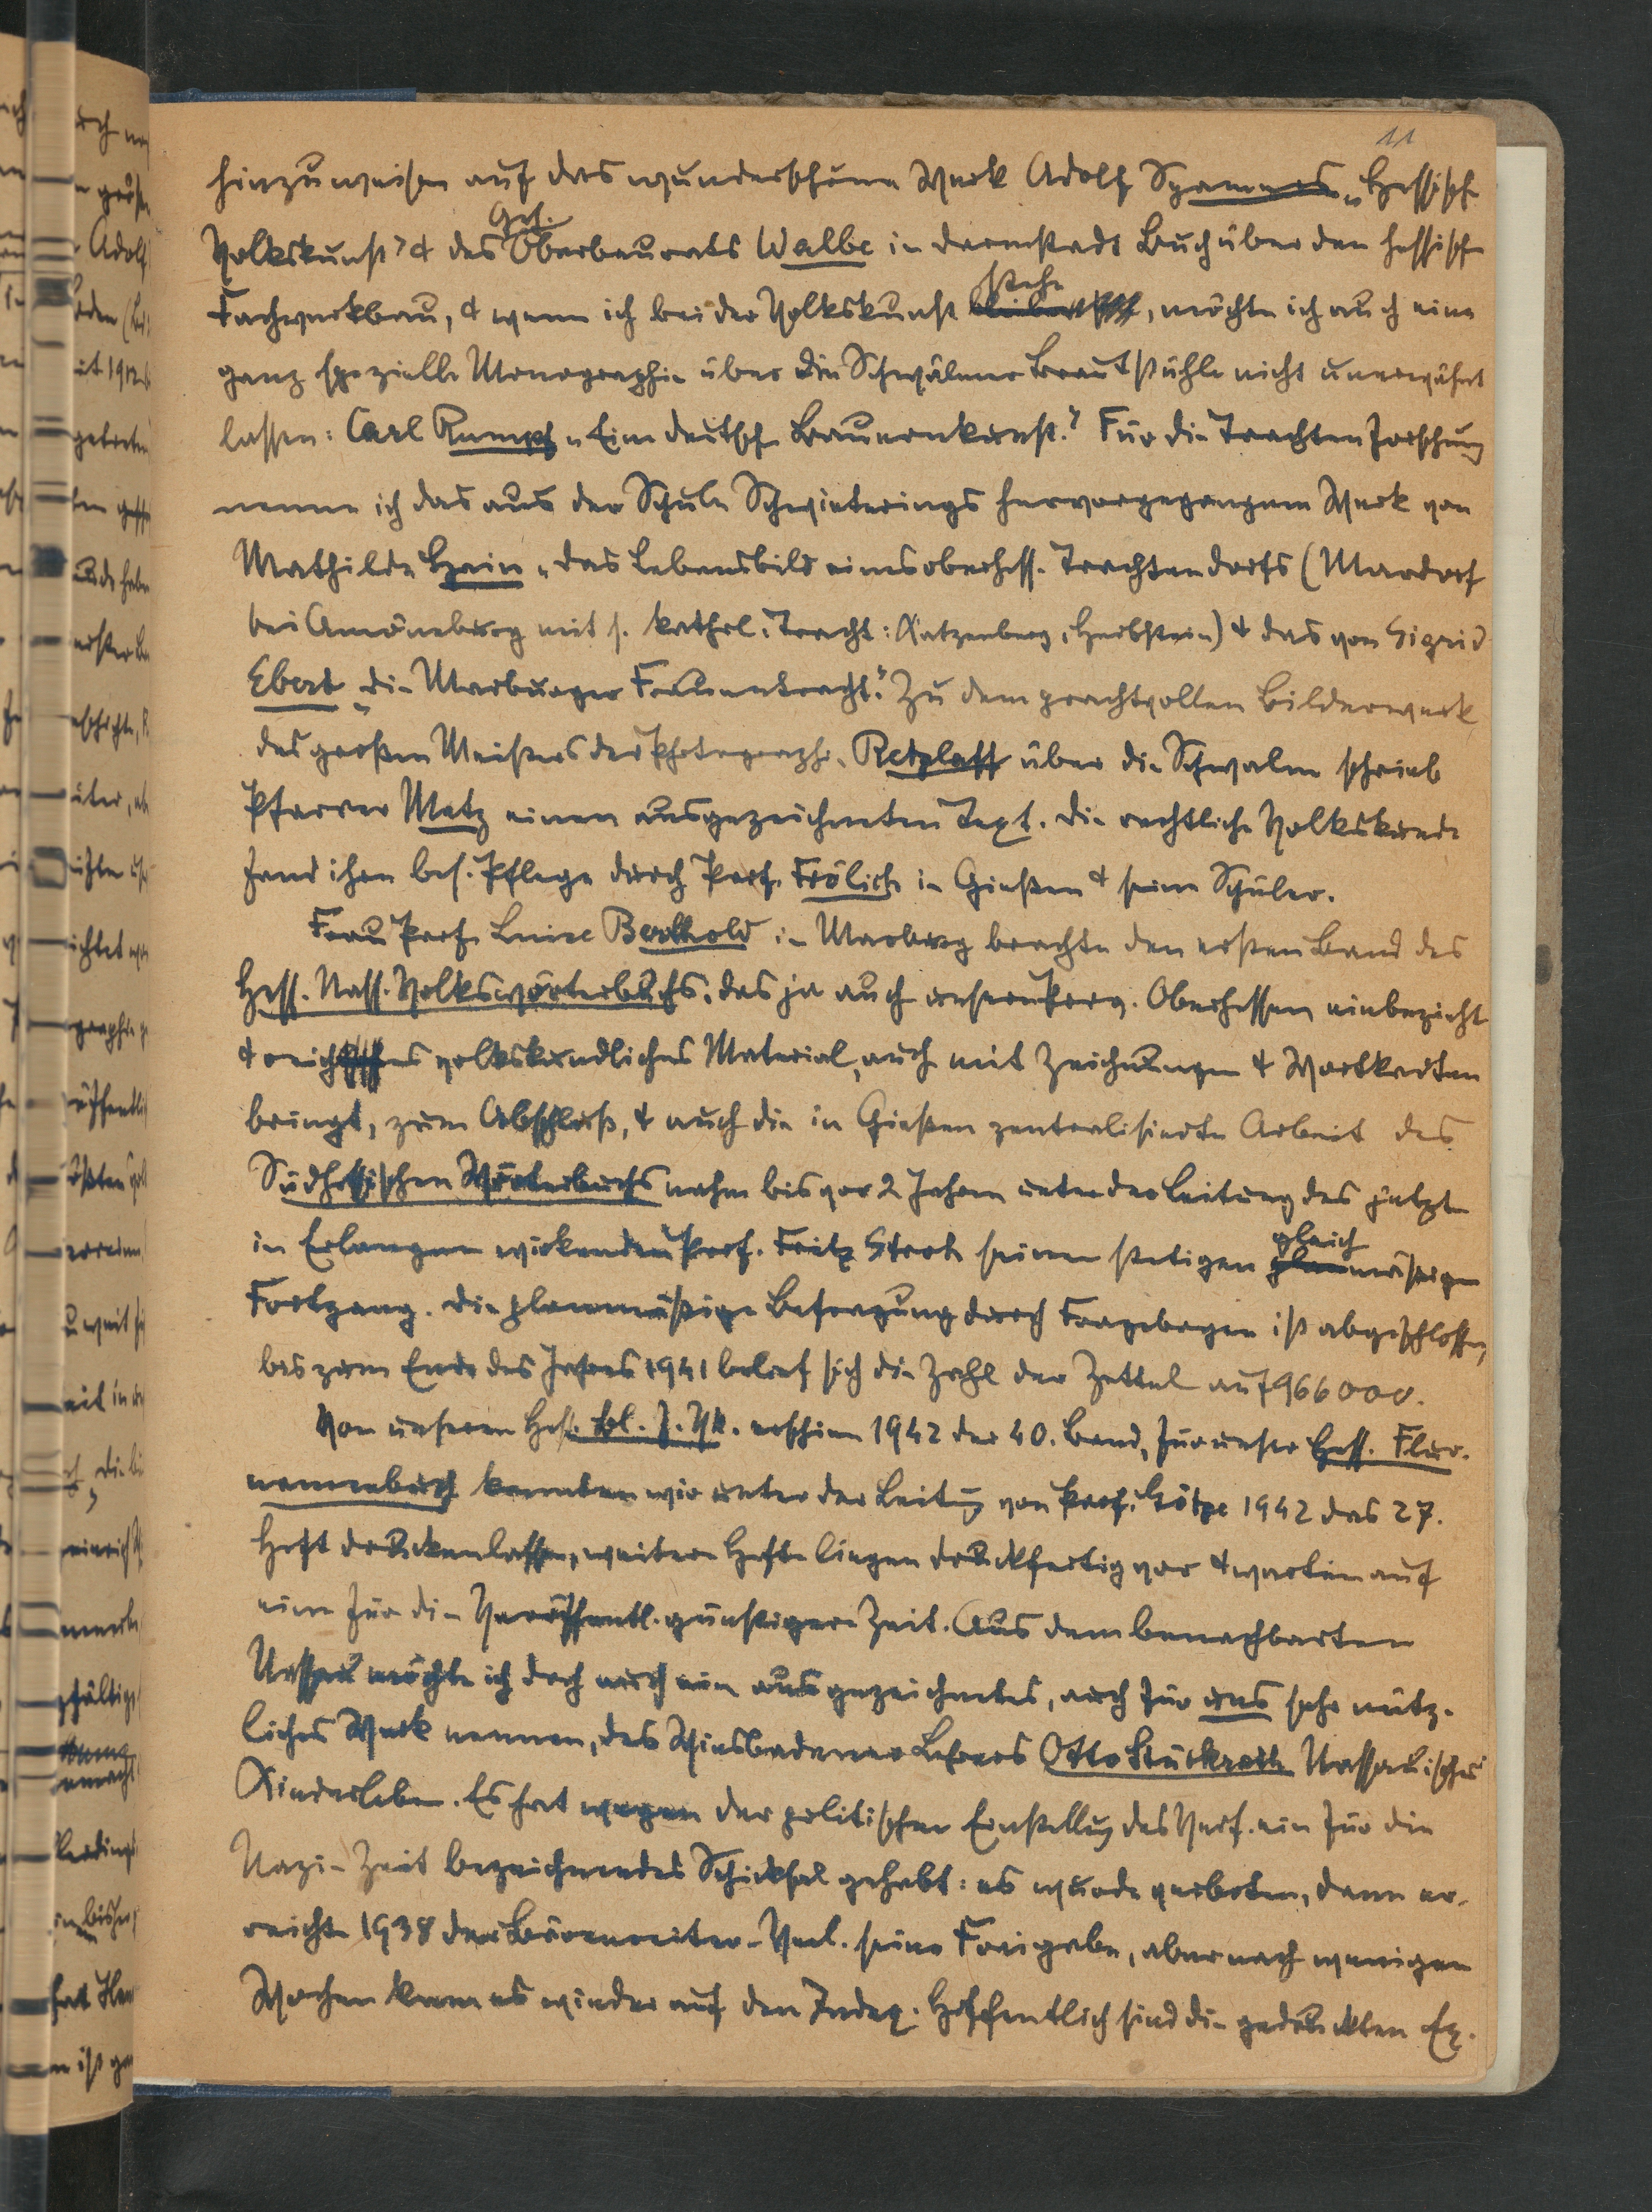 11
hinzuweisen auf das wunderschöne Werk Adolf Spamers „Hessische
Volkskunst“ & des Geh. Oberbaurats Walbe in Darmstadt Buch über den hessischen
Fachwerkbau, & wenn ich bei der Volkskunst stehe, möchte ich auch eine
ganz spezielle Monographie über die Schwälmer Brautstühle nicht unerwähnt
lassen: Carl Rumpf „Eine deutsche Bauernkunst“. Für die Trachtenforschung
nenne ich das aus der Schule Schwieterings hervorgegangene Werk von
Mathilde Hain „Das Lebensbild eines oberhess. Trachtendorfs (Mardorf
bei Amöneburg mit s. kathol. Tracht: Katzenberg, Herbstein) & das von Sigrid
Ebert „Die Marburger Frauentracht“. Zu dem prachtvollen Bilderwerk
des großen Meisters der Photographie Retzlaff über die Schwalm schrieb
Pfarrer Metz einen ausgezeichneten Text. Die rechtliche Volkskunde
fand ihre bes. Pflege durch Prof. Frölich in Gießen & seine Schüler.
Frau Prof. Luise Berthold in Marburg brachte den ersten Band des
Hess. Nass. Volkswörterbuchs, das ja auch unsere Prov. Oberhessen einbezieht
& reiches volkskundliches Material, auch mit Zeichnungen & Wortkarten
bringt, zum Abschluß, & auch die in Gießen zentralisierte Arbeit des
Südhessischen Wörterbuchs nahm bis vor 2 Jahren unter der Leitung des jetzt
in Erlangen wirkenden Prof. Fritz Stroh seinen stetigen gleichmäßigen
Fortgang. Die planmäßige Befragung durch Fragebogen ist abgeschlossen,
bis zum Ende des Jahres 1941 belief sich die Zahl der Zettel auf 966 000.
Von unseren Hess. Bl. f. Vk. erschien 1942 der 40. Band, für unser Hess. Flur-
namenbuch konnten wir unter der Leitung von Prof. Götze 1942 das 27.
Heft drucken lassen, weitere Hefte liegen druckfertig vor & warten auf
eine für die Veröffentl. günstigere Zeit. Aus dem benachbarten
Nassau möchte ich doch auch ein ausgezeichnetes, auch für uns sehr nütz-
liches Werk nennen, des Wiesbadener Lehrers Otto Stückrath Nassauisches
Kinderleben. Es hat wegen der politischen Einstellung des Verf. ein für die
Nazi-Zeit bezeichnendes Schicksal gehabt: es wurde verboten, dann er-
reichte 1938 der Bärenreiter-Verl. seine Freigabe, aber nach wenigen
Wochen kam es wieder auf den Index. Hoffentlich sind die gedruckten Ex.